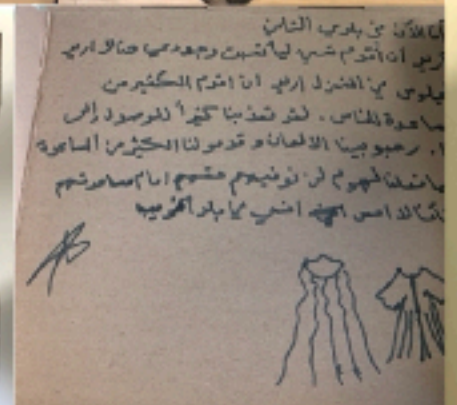 أنا الآن في بلدي الثاني
أريد أن أقدم شيء ليثبت وجودي هنا لا أريد
الجلوس في المنزل اريد ان اقدم الكثير من
مساعدة للناس. لقد تعذبنا كثيراً للوصول إلى
رحبو بينا الالمان و قدمو لنا الكثير من المساعدة
مهما فعلنا لهم لن نوفيهم حقهم امام مساعدتهم
انني في بلد الغريب